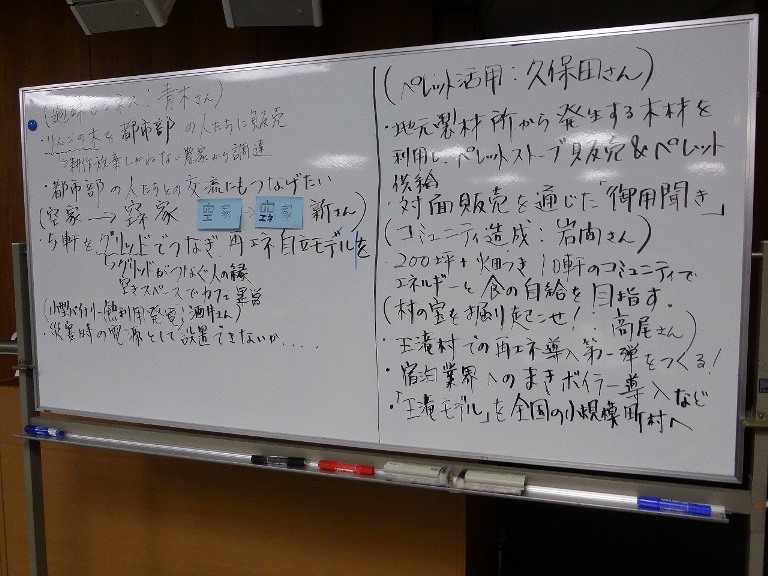 青木さん)
・りんごの木を都市部の人たちに販売
・都市部の人たちとの交流にもつなげたい
(空家→ 空家 空エネ家 新さん)
・5軒をグリッドでつなぎ、再エネ自立モデルを
グリッドがつなぐ人の縁
空きスペースでカフェ運営
熱利用発電:酒井さん)
・災害時の電源として設置できないか.....
(ペレット活用:久保田さん)
・地元製材所から発生する木材を
利用し、ペレットストーブ販売&ペレット
供給
・対面販売を通じた「御用聞き」
(コミュニティ造成:岩間さん)
・200坪+畑つき10軒のコミュニティで
エネルギーと食の自給を目指す。
(村の宝を掘り起こせ!:高尾さん)
・王滝村での再エネ導入第一弾をつくる!
・宿泊業界へのまきボイラー導入など
・「王滝モデル」を全国の小規模町村へ